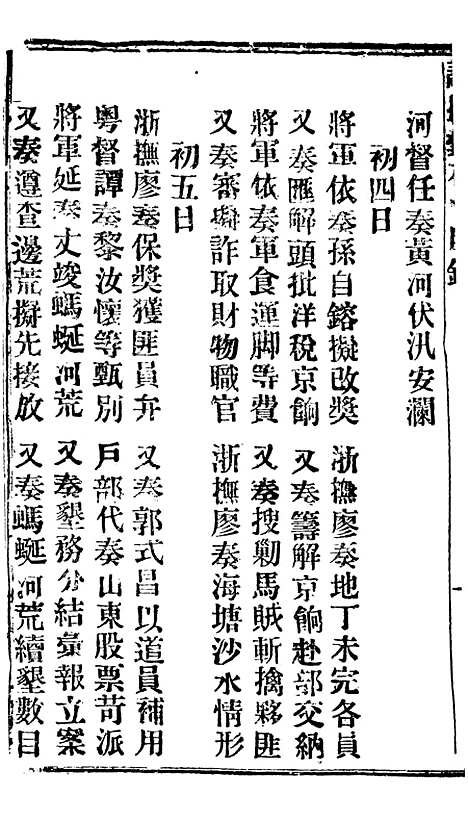 河督任奏黃河伏汛安瀾
初四日
將軍依奏孫自鎔擬改奬 浙撫廖奏地丁未完各員
又奏匯解頭批洋稅京餉 又奏籌解京餉赴部交納
將軍依奏軍食運脚等費 又奏搜剿馬賊斬擒夥匪
又奏審擬詐取財物職官 浙撫廖奏海塘沙水情形
初五日
浙撫廖奏保奬獲匪員弁 又奏郭式昌以道員補用
粵督譚奏黎汝懷等甄別 戶部代奏山東股票苛派
將軍延奏丈竣螞蜒河荒 又奏墾務分結彙報立案
又奏遵查邊荒擬先接放 又奏螞蜒河荒續墾數目